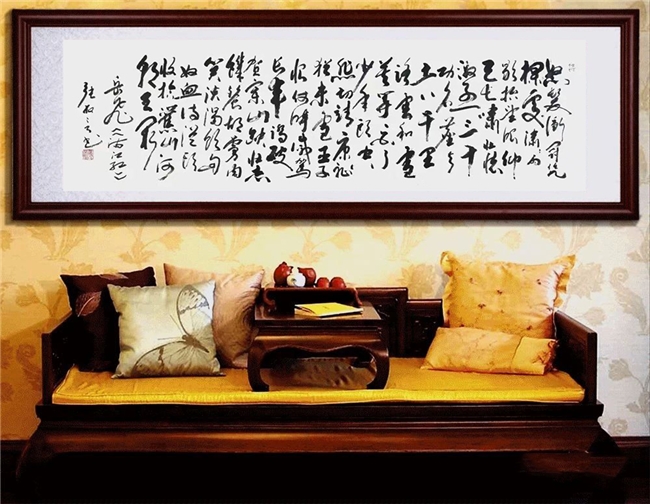 怒髮衝冠憑
欄處瀟瀟雨
歇抬望眼仰
天長嘯壯懷
激烈三十
功名塵與
土八千里
路雲和月
莫等閑白了
少年頭空
悲切靖康恥
猶未雪臣子
恨何時滅駕
長車踏破
賀蘭山缺壯志
饑餐胡虜肉
笑談渴飲匈
奴血待從頭
收拾舊山河
朝天闕
岳飛《滿江紅》